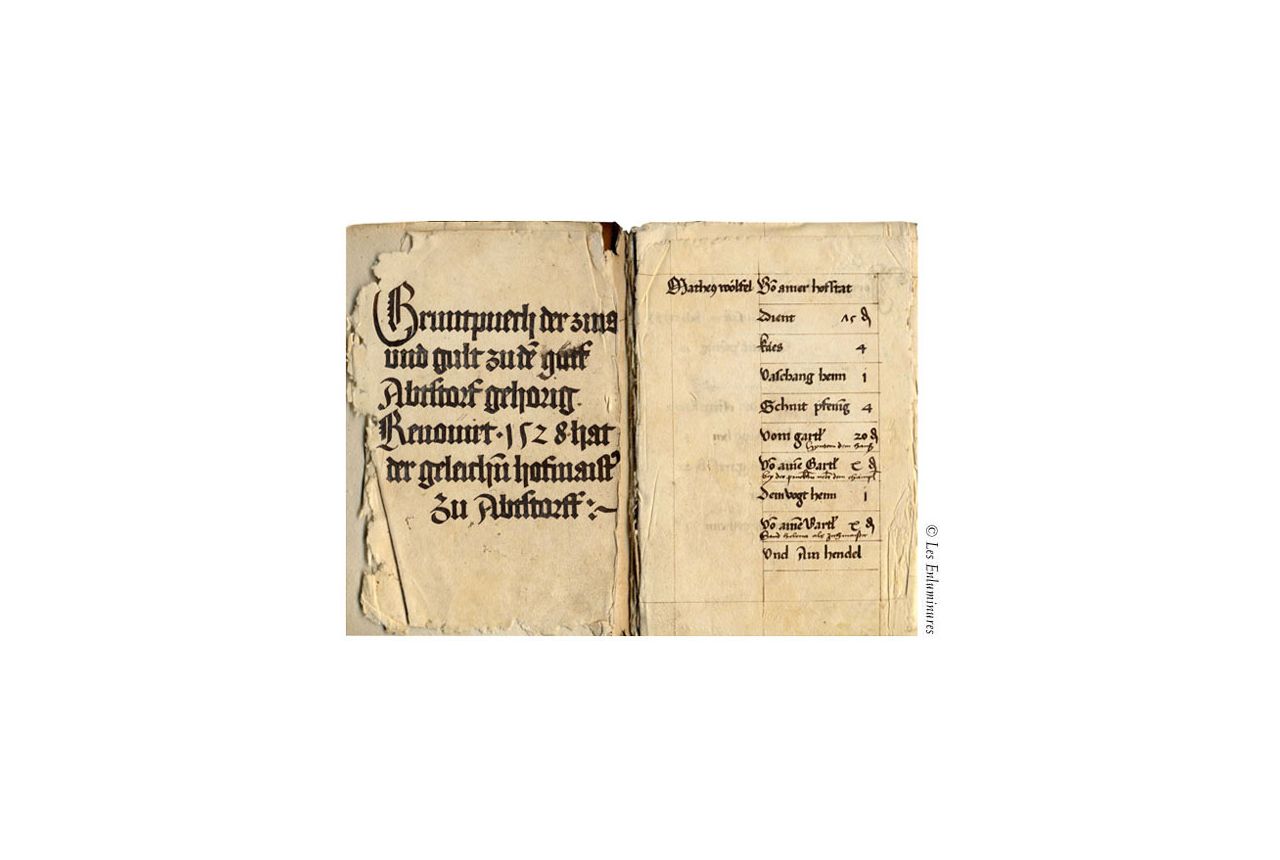 Gruntpuech der zins
und gult zu dē gutt
Abtstorf gehorig.
Renouirt · 1528 · hat
der geleichn̄ hofmaist'
Zu Abtstorff :~
Mathe9 wölfel Vō ainer hofstat
dient 15 ₰
käs 4
Vaschang henn 1
Schnit pfenīg 4
Vom gartl 20 ₰
hyntten dem haus
Vō ainē Gartl ₰
Dem vogt henn 1
Vō ainē Gartl ₰
Und Ain hendel
© Les Enluminures